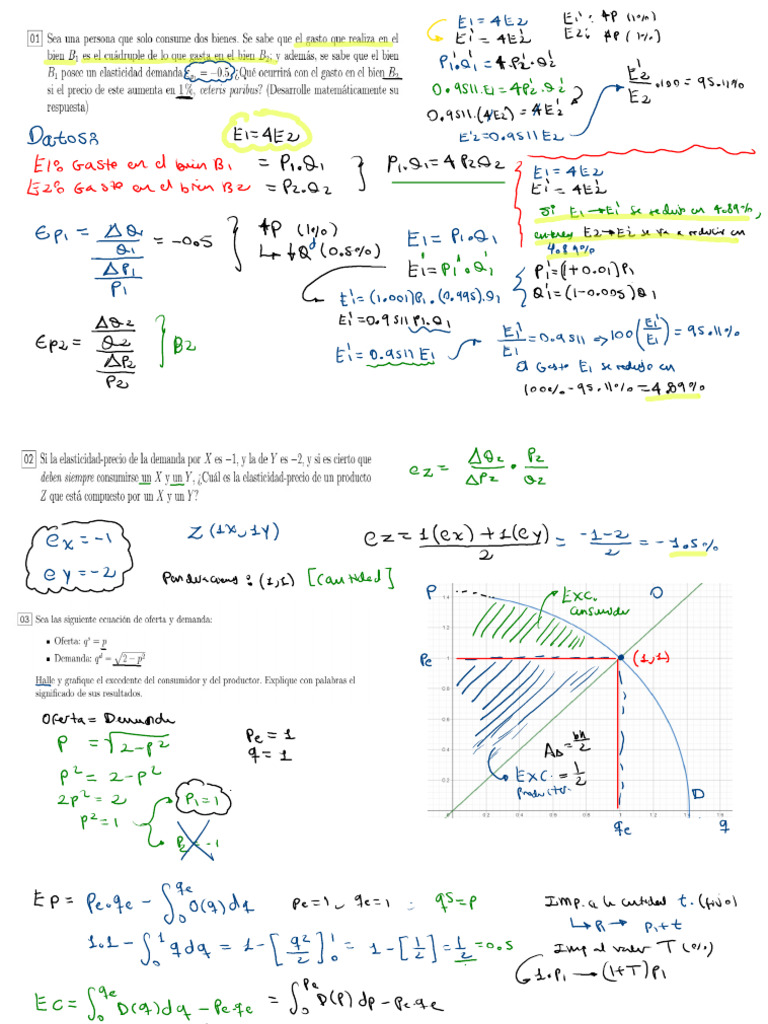 01 Sea una persona que solo consume dos bienes. Se sabe que el gasto que realiza en el
bien B₁ es el cuádruple de lo que gasta en el bien B₂; y además, se sabe que el bien
B₁ posee un elasticidad demanda = −0.5. ¿Qué ocurrirá con el gasto en el bien B₂
si el precio de este aumenta en 1%, ceteris paribus? (Desarrolle matemáticamente su
respuesta)
E₁ = 4E₂
E₁' = 4E₂'
P₁'.Q₁' = 4P₂'.Q₂'
0.9511 P₁.Q₁ = 4P₂'.Q₂'
0.9511.(4E₂) = 4E₂'
E₂' = 0.9511 E₂
E₁: ↑P (1%)
E₂: ↑P (1%)
E₂'/E₂ .100 = 95.11%
Datos:
E₁ = 4E₂
E1: Gasto en el bien B₁ = P₁.Q₁
E2: Gasto en el bien B₂ = P₂.Q₂
P₁.Q₁ = 4P₂Q₂
E₁ = 4E₂
E₁' = 4E₂'
Si E₁→E₁' se reduce en 4.89%,
entonces E₂→E₂' se va a reducir en
4.89%
Ep₁ = ΔQ₁/Q₁ / ΔP₁/P₁ = −0.5
↑P (1%)
↳ ↓Qᵈ (0.5%)
E₁ = P₁.Q₁
E₁' = P₁'.Q₁'
P₁' = (1+0.01)P₁
Q₁' = (1−0.005)Q₁
E₁' = (1.001)P₁.(0.995).Q₁
E₁' = 0.9511 P₁.Q₁
E₁' = 0.9511 E₁
E₁'/E₁ = 0.9511 ⇒ 100(E₁'/E₁) = 95.11%
El Gasto E₁ se redujo en
100% − 95.11% = 4.89%
Ep₂ = ΔQ₂/Q₂ / ΔP₂/P₂ } B2
02 Si la elasticidad-precio de la demanda por X es −1, y la de Y es −2, y si es cierto que
deben siempre consumirse un X y un Y, ¿Cuál es la elasticidad-precio de un producto
Z que está compuesto por un X y un Y?
ez = ΔQz/ΔPz . Pz/Qz
ex = −1
ey = −2
Z (1X, 1Y)
Ponderaciones: (1,1) [Cantidad]
ez = 1(ex) + 1(ey) / 2 = −1−2/2 = −1.5%
03 Sea las siguiente ecuación de oferta y demanda:
▪ Oferta: qˢ = p
▪ Demanda: qᵈ = √2 − p²
Halle y grafique el excedente del consumidor y del productor. Explique con palabras el
significado de sus resultados.
Oferta = Demanda
P = √2−p²
p² = 2−p²
2p² = 2
p² = 1
P₁ = 1
P₂ = −1
Pe = 1
q = 1
P
Exc. Consumidor
O
Pe
(1,1)
A△ = bh/2
Exc. Productor = 1/2
D
qe
q
1.4
1.2
1
0.8
0.6
0.4
0.2
0
0.2
0.4
0.6
0.8
1
1.2
1.6
EP = Pe.qe − ∫₀^qe O(q)dq
Pe=1 , qe=1 : qˢ=p
1.1 − ∫₀¹ q dq = 1 − [q²/2]₀¹ = 1 − [1/2] = 1/2 = 0.5
EC = ∫₀^qe D(q)dq − Pe.qe = ∫₀^Pe D(P) dp − Pe.qe
Imp. a la cantidad t. (fijo)
↳ P₁ → P₁+t
Imp al valor T (%)
1.P₁ → (1+T)P₁